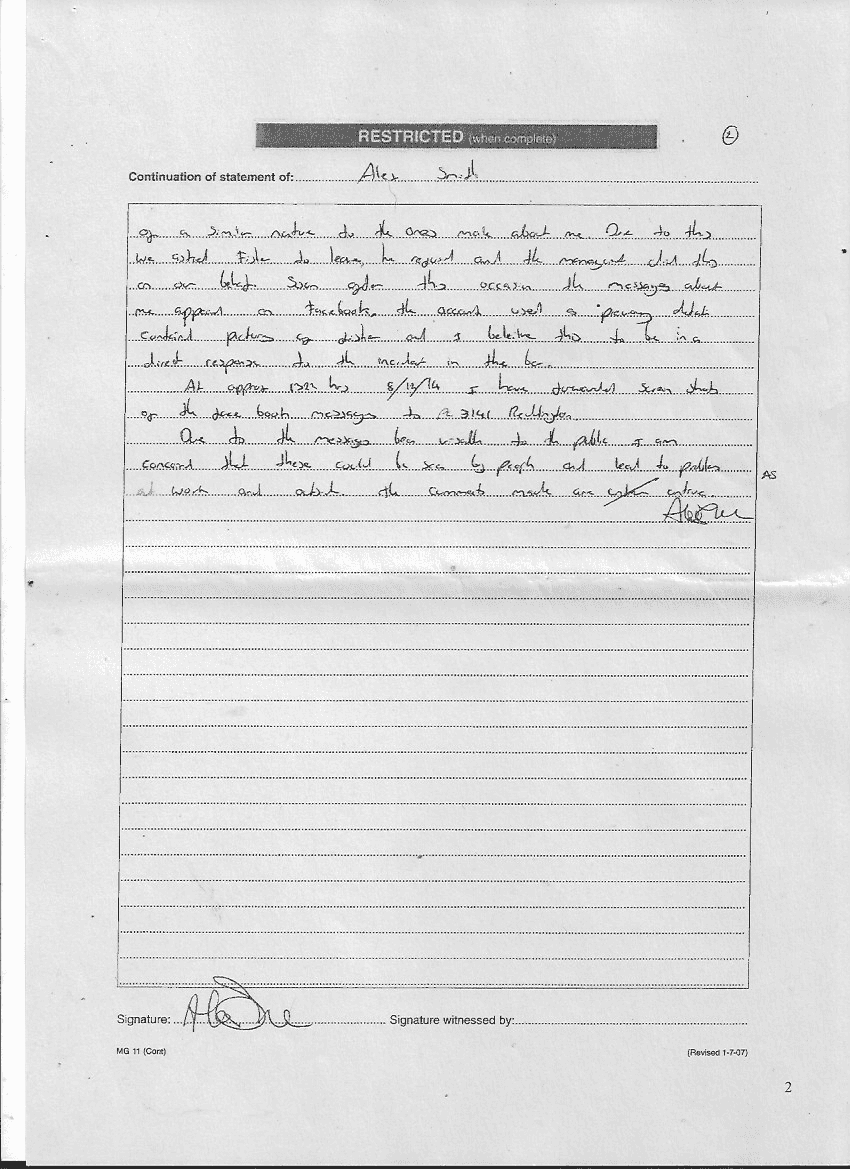 RESTRICTED (when complete)
2
Continuation of statement of: Alex Smith
of a similar nature to the ones made about me Due to this
we asked Fisher to leave, he refused and the management did this
on our behalf. Soon after this occasion the messages about
me appeared on Facebook. the account used a
contained pictures of fisher and I beleive this to be in a
direct response to the incident in the bar.
At approx 1322 hrs 8/12/14 I have forwarded screen shots
of the face book messages to PC 3141
Due to the messages been visable to the public I am
concerned that these could be seen by people and lead to problems
AS
at work and outside. the comments made are untrue.
Signature:
Signature witnessed by:
MG 11 (Cont)
(Revised 1-7-07)
2